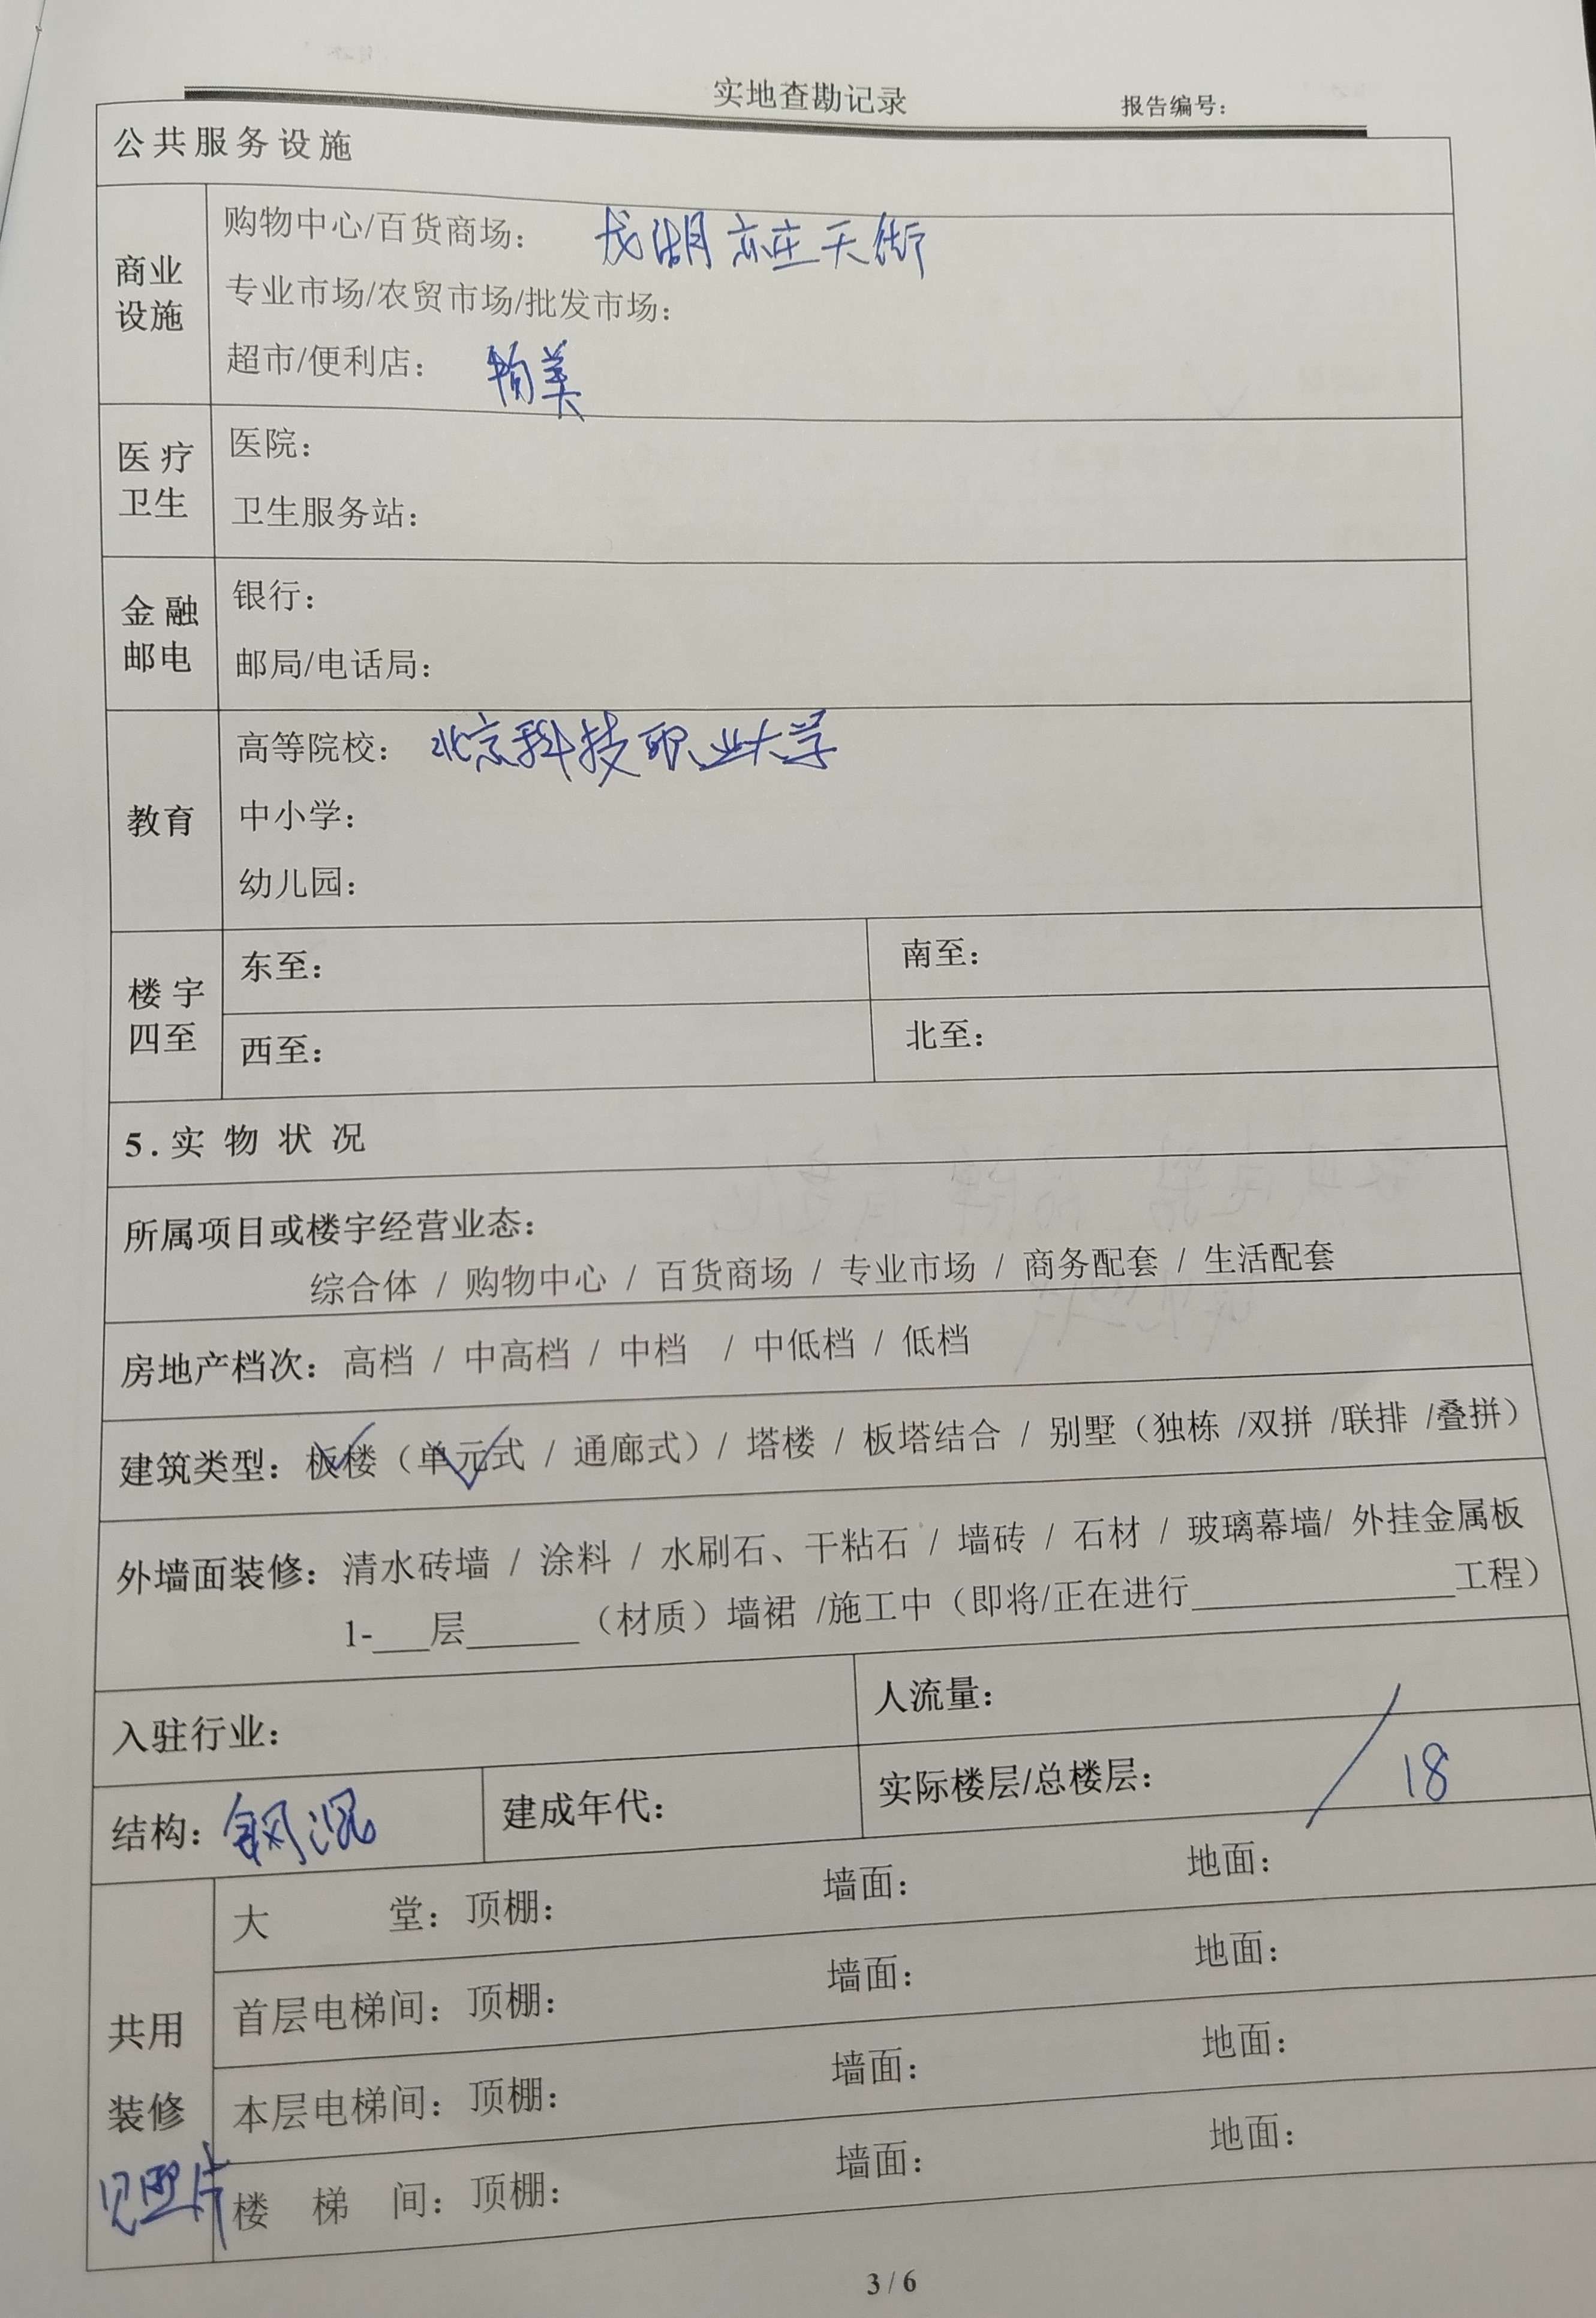 实地查勘记录 报告编号：
公共服务设施
商业设施
购物中心/百货商场： 龙湖亦庄天街
专业市场/农贸市场/批发市场：
超市/便利店： 美
医疗卫生
医院：
卫生服务站：
金融邮电
银行：
邮局/电话局：
教育
高等院校： 北京科技职业大学
中小学：
幼儿园：
楼宇四至
东至： 南至：
西至： 北至：
5.实物状况
所属项目或楼宇经营业态：
综合体 / 购物中心 / 百货商场 / 专业市场 / 商务配套 / 生活配套
房地产档次：高档 / 中高档 / 中档 / 中低档 / 低档
建筑类型：板楼（单元式 / 通廊式）/ 塔楼 / 板塔结合 / 别墅（独栋 /双拼 /联排 /叠拼）
外墙面装修：清水砖墙 / 涂料 / 水刷石、干粘石 / 墙砖 / 石材 / 玻璃幕墙/ 外挂金属板
1-___层______（材质）墙裙 /施工中（即将/正在进行______________工程）
入驻行业： 人流量：
结构：钢混 建成年代： 实际楼层/总楼层： / 18
共用装修 见照片
大堂：顶棚： 墙面： 地面：
首层电梯间：顶棚： 墙面： 地面：
本层电梯间：顶棚： 墙面： 地面：
楼梯间：顶棚： 墙面： 地面：
3 / 6